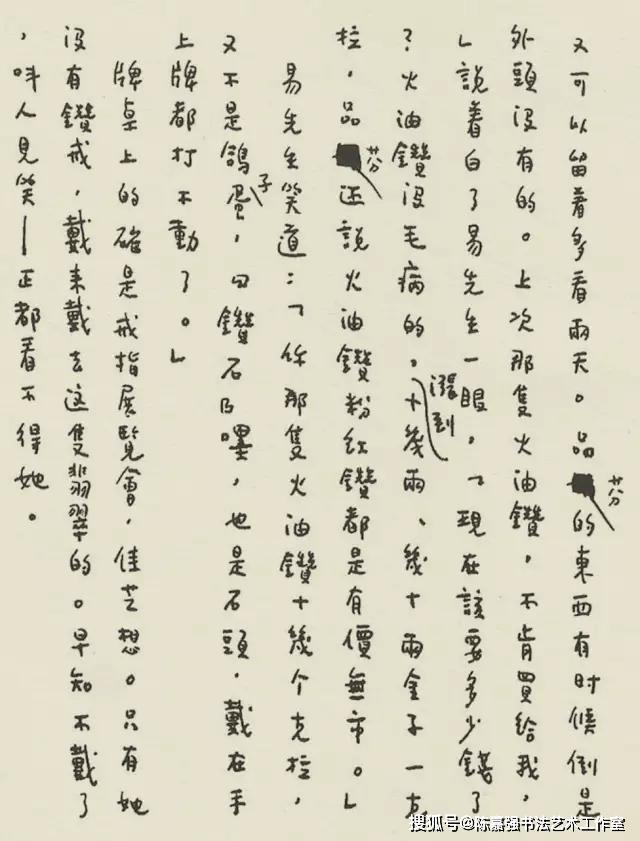 又可以留着多看兩天。品芬的東西有时候倒是
外頭沒有的。上次那隻火油鑽,不肯買給我,
」說着白了易先生一眼,「現在該要多少錢了
?火油鑽沒毛病的,漲到十幾兩、幾十兩金子一克
拉,品芬还說火油鑽粉紅鑽都是有價無市。」
易先生笑道:「你那隻火油鑽十幾个克拉,
又不是鴿子蛋,『鑽石』嘿,也是石頭,戴在手
上牌都打不動了。」
牌桌上的確是戒指展覽會,佳芝想。只有她
沒有鑽戒,戴来戴去这隻翡翠的。早知不戴了
,叫人見笑—正都看不得她。
搜狐号@陈嘉强书法艺术工作室